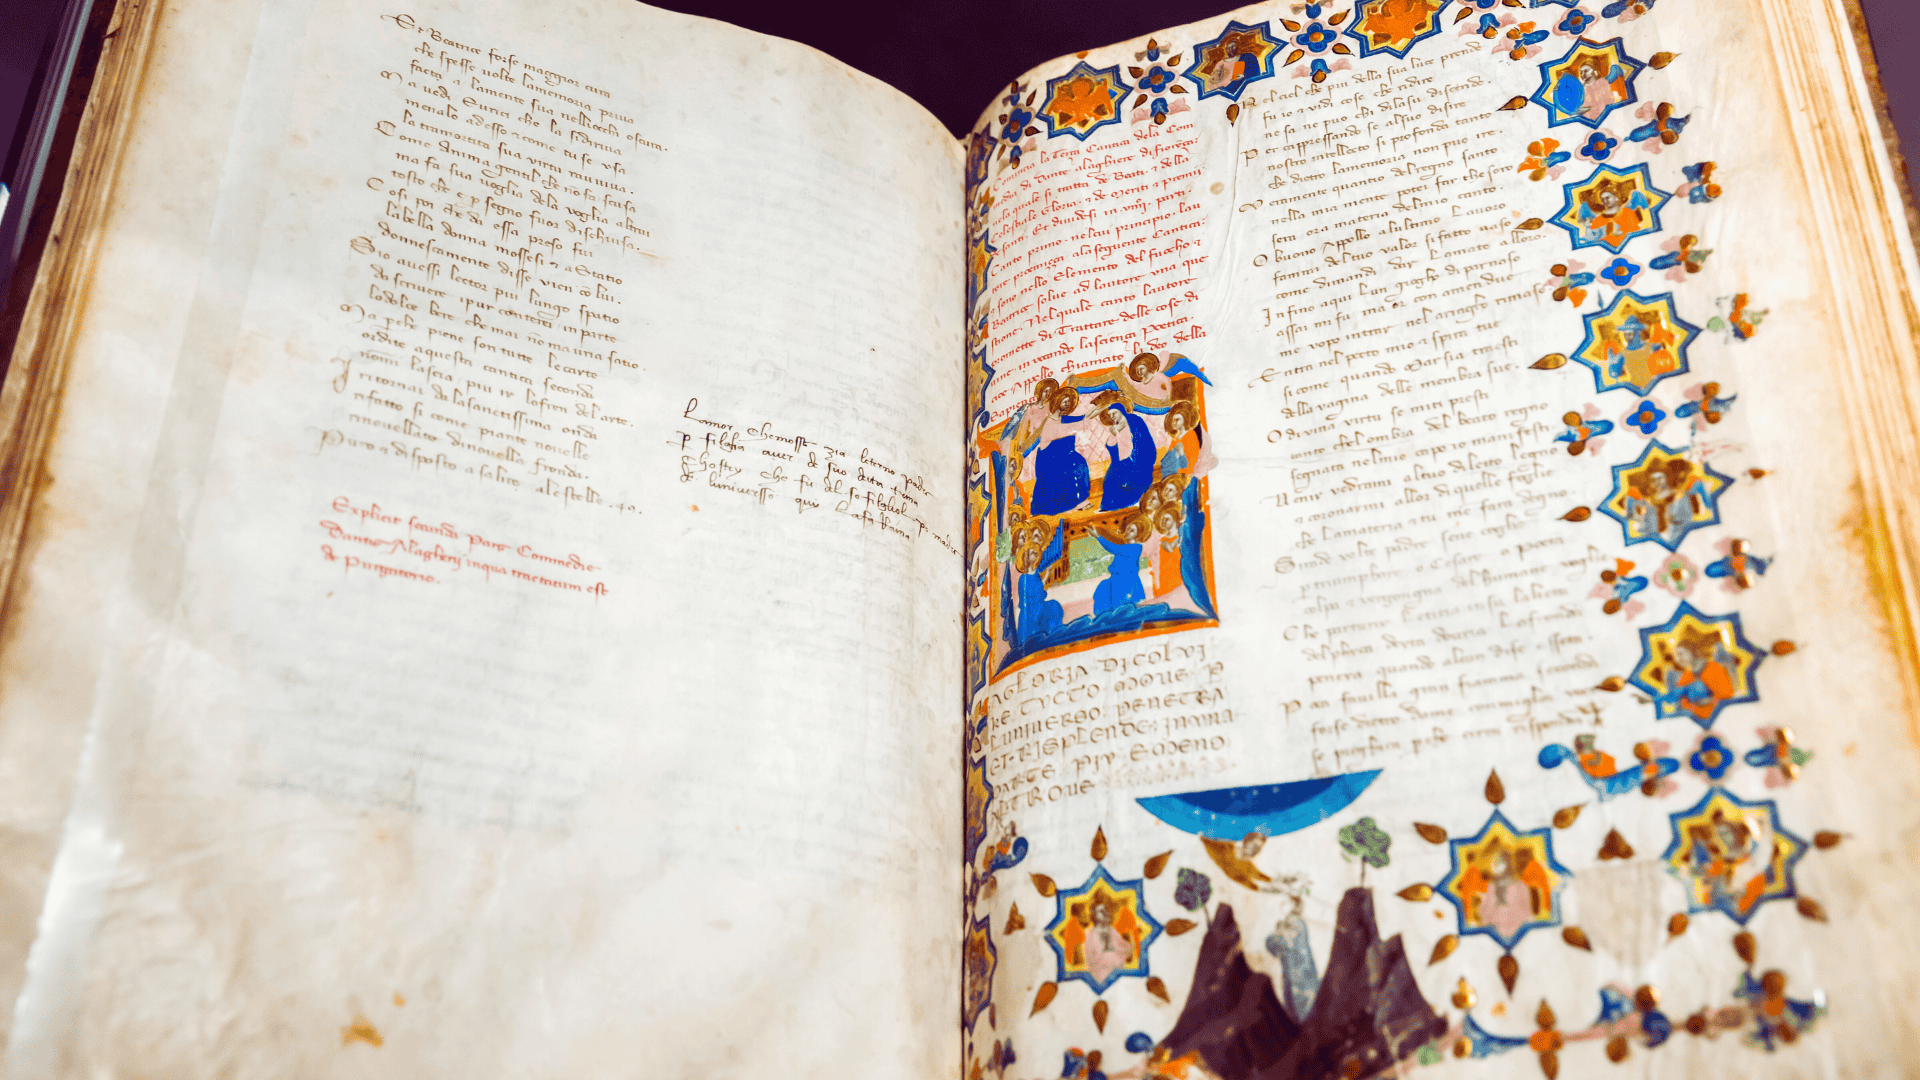 Et Beatrice forse maggior cura
che spesse volte la memoria priva
facto a la mente sua nelli ochi oscura.
Ma vedi Eunoi che la si diriva
menalo ad esso e come tu se usa
la tramortita sua virtu raviva.
Come anima gentil che no fa scusa
ma fa sua voglia dela voglia altrui
tosto che e p segno fuor dischiusa.
Cosi poi che da essa preso fui
la bella donna mossesi e a Statio
donnescamente disse vien co lui.
Sio avessi lector piu lungo spatio
da scrivere i pur conterei in parte
lo dolce bere che mai no mauria satio.
Ma p che piene son tutte le carte
ordite a questa cantica seconda
non mi lascia piu ir lo fren del arte.
I ritornai da la sanctissima onda
rifatto si come piante novelle
rinovellate di novella fronda.
Puro e disposto a salire a le stelle.
Explicit secunda Pars Comedie
Dantis Alagherij in qua tractatum est
de Purgatorio.
Lamor che mosse gia leterno padre
p figlia aver de suo
che fu del so figliol poi madre
de luniverso qui la fa Raina
Comincia la Terza Cantica dela Com
media di Dante Alaghiere di fiorenza
nela quale si tratta de Beati e della
Celestiale Gloria e de meriti e premii
Canto primo nel cui principio lau
tore proemiza a la seguente Cantica
e sono nello Elemento del fuocho e
Beatrice solve ad lautore una que
stione Nel quale canto lautore
promette di Trattare delle cose di
vine invocando la scienza Poetica
cioe Appollo chiamato lo deo della
Sapienza
LA GLORIA DI COLUI
CHE TUCTO MOVE P
LUNIVERSO PENETRA
ET RISPLENDE IN UNA
PARTE PIU E MENO
ALTROVE
Nel ciel che piu della sua luce prende
fu io e vidi cose che ridire
ne sa ne puo chi di lasu discende
Per ca pressando se al suo disire
nostro intellecto si profonda tanto
che dietro la memoria non puo ire.
Veramente quanto del regno santo
nella mia mente potei far thesoro
sera ora materia del mio canto.
O buono Appollo a lultimo Lavoro
fammi del tuo valor si fatto vaso
come dimandi dar Lamato alloro.
Infino a qui lun giogho di parnaso
assai mi fu ma or con amendue
me uopo intrar nel aringho rimaso
Entra nel pecto mio e spira tue
si come quando Marsia traesti
della vagina delle membra sue.
O divina virtu se mi ti presti
tanto che lombra del beato regno
segnata nel mio capo io manifesti.
Venir vedrami al tuo dilecto legno
e coronarmi allor di quelle foglie
che la materia e tu me farai degno.
Si rade volte padre sene coglie
p triumphare o Cesare o poeta
colpa e vergogna del humane voglie
Che parturir Letitia in su la lieta
delphica deyta dovria La fronda
penera quando alcun di se asseta.
Poca favilla gran fiamma seconda
forse dietro a me con miglior voci
se preghera perche cirra risponda